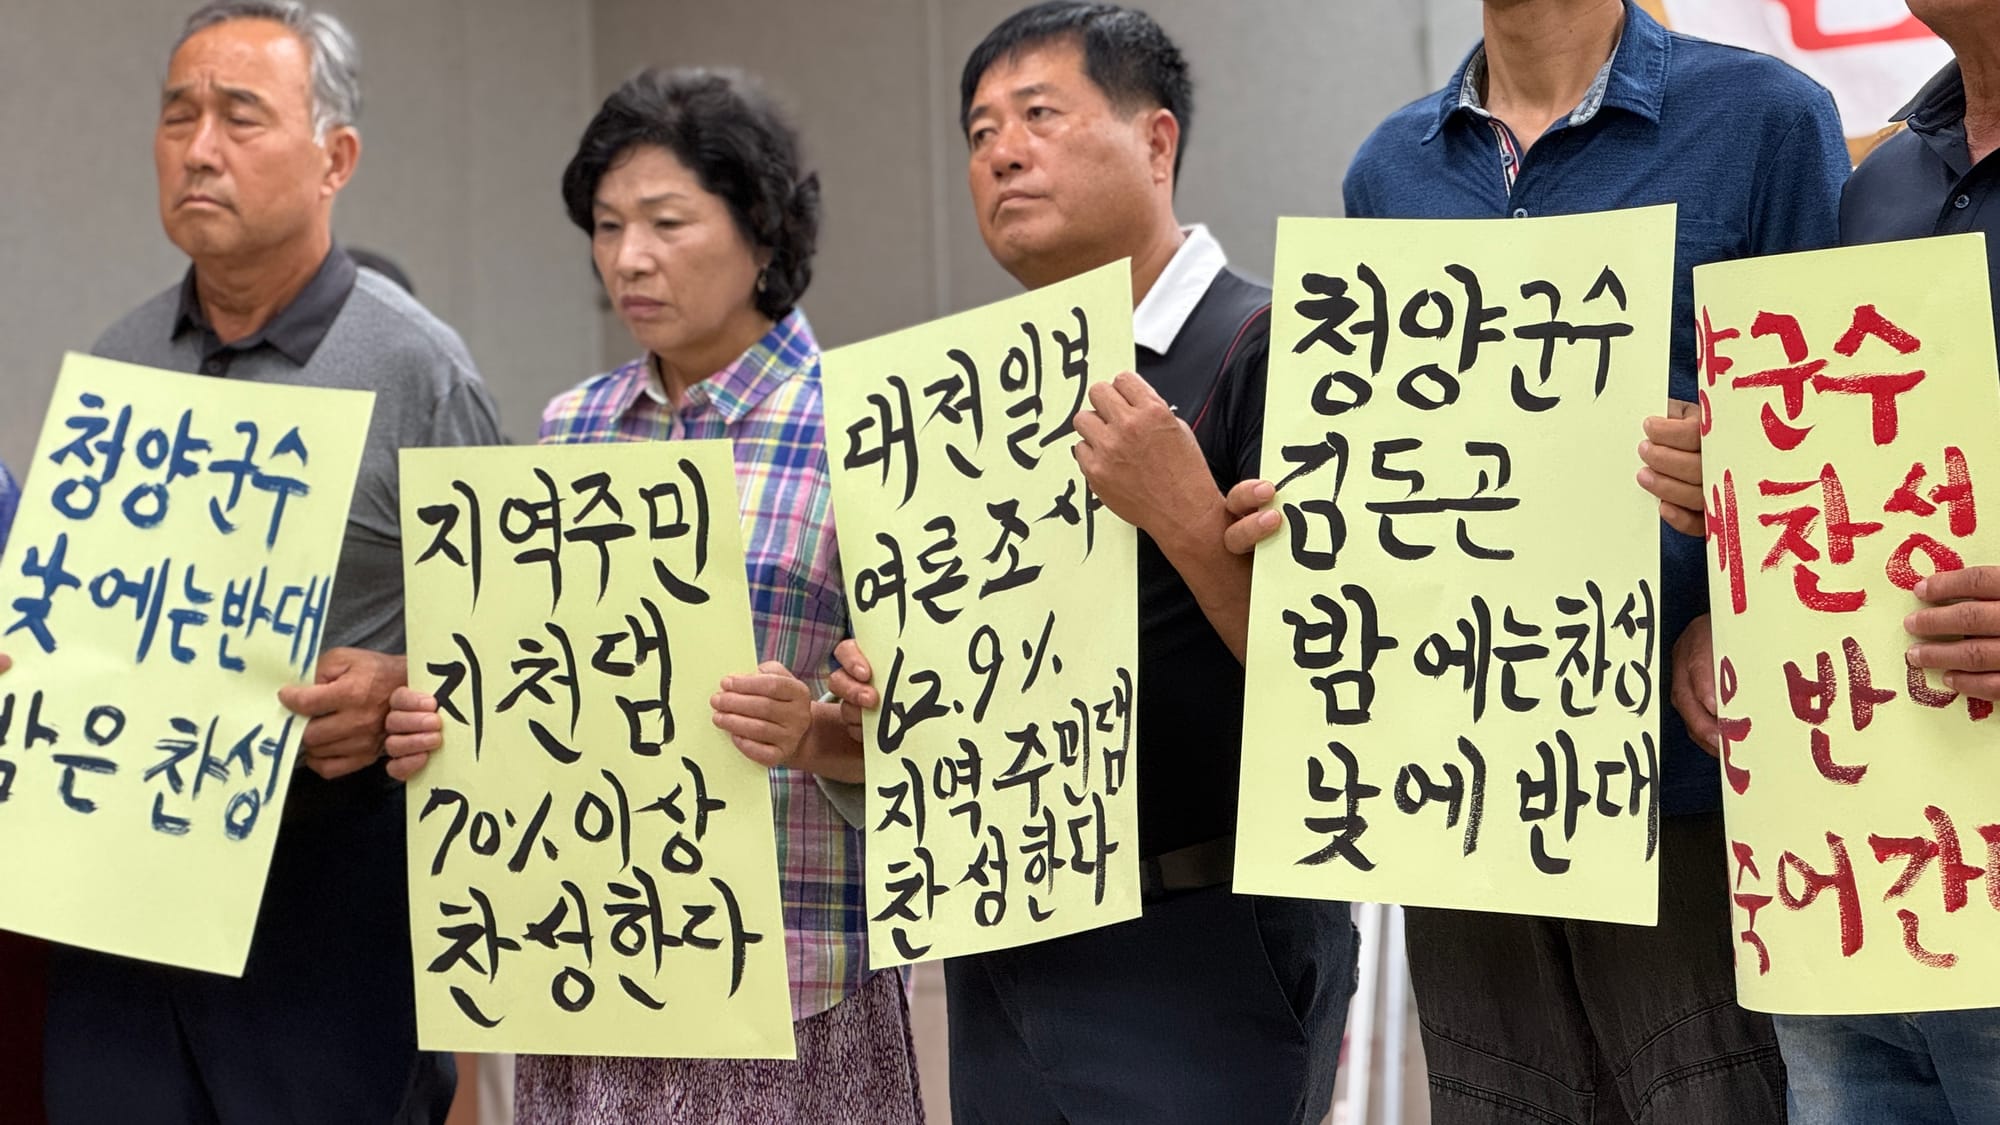 청양군수
낮에는 반대
밤은 찬성
지역주민
지천댐
70% 이상
찬성한다
대전일보
여론조사
62.9%
지역주민댐
찬성한다
청양군수
김돈곤
밤에는 찬성
낮에 반대
양군수
에 찬성
은 반대
죽어간